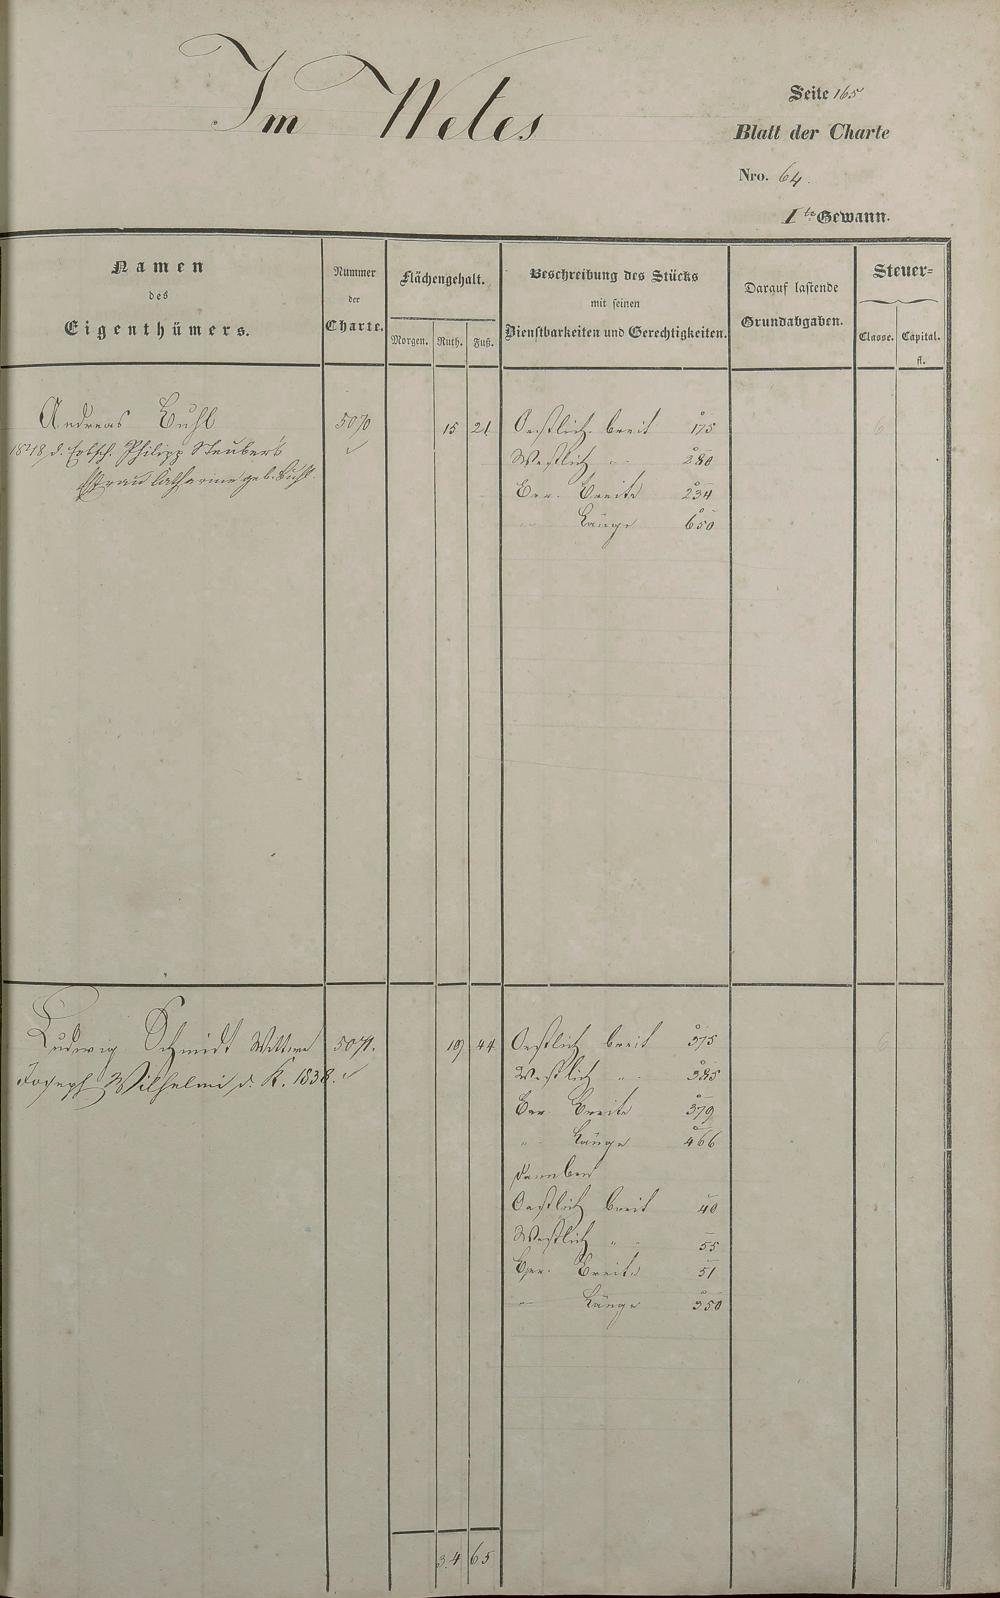 Im Wetes
Seite 165
Blatt der Charte
Nro. 64.
I te Gewann.
Namen
des
Eigenthümers.
Nummer
der
Charte.
Flächengehalt.
Morgen. Ruth. Fuß.
Beschreibung des Stücks
mit seinen
Dienstbarkeiten und Gerechtigkeiten.
Darauf lastende
Grundabgaben.
Steuer-
Classe. Capital.
fl.
Andreas Buhl 5070 15 21 Oestlich breit 175
d. Erbsch. Philipp Steuber's Westlich " 280
Frau Catharine geb. Buhl. Ber. Breite 234
" Länge 650
6
Ludwig Schmidt Wittwe 5071. 19 44 Oestlich breit 375
Joseph Wilhelmi d. K. 1838. Westlich " 385
Ber. Breite 379
" Länge 466
6
Oestlich breit 40
Westlich " 55
Ber. Breite 51
" Länge 350
34 65